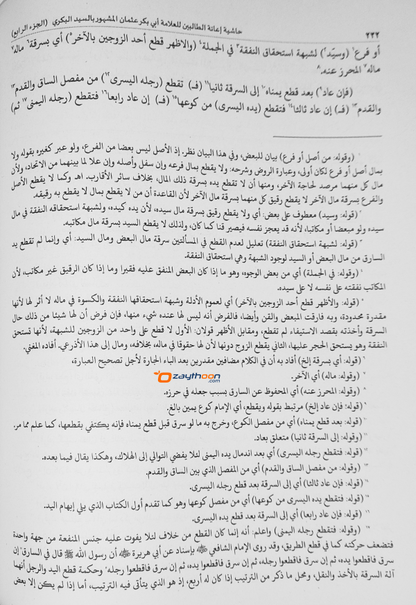 ٢٢٢ حاشية إعانة الطالبين للعلامة أبي بكر عثمان المشهور بالسيد البكري (الجزء الرابع)
أو فرع) (وسيّد) لشبهة استحقاق النفقة في الجملة (والأظهر قطع أحد الزوجين بالآخر) أي بسرقة ماله
المحرز عنه.
(فإن عاد) بعد قطع يمناه إلى السرقة ثانيا (فـ) تقطع (رجله اليسرى) من مفصل الساق والقدم
(فـ) إن عاد ثالثا فتقطع (يده اليسرى) من كوعها (فـ) إن عاد رابعا فتقطع (رجله اليمنى) ثم
(وقوله: من أصل أو فرع) بيان للبعض، وفي هذا البيان نظر. إذ الأصل ليس بعضا من الفرع، ولو عبر كغيره بقوله ولا
بمال أصل أو فرع لكان أولى، وعبارة الروض وشرحه: ولا يقطع بمال فرعه وإن سفل وأصله وإن علا لما بينهما من الاتحاد، ولأن
مال كل منهما مرصد لحاجة الآخر، ومنها أن لا تقطع يده بسرقة ذلك المال، بخلاف سائر الأقارب. اهـ وكما لا يقطع الأصل
والفرع بسرقة مال الآخر لا يقطع رقيق كل منهما بسرقة مال الآخر لأن القاعدة أن من لا يقطع بمال لا يقطع به رقيقه.
(قوله: وسيد) معطوف على بعض: أي ولا يقطع رقيق بسرقة مال سيده، لأن يده كيده، ولشبهة استحقاقه النفقة في مال
سيده ولو مبعضا أو مكاتبا، لأنه قد يعجز نفسه فيصير قنا كما كان، ولذلك لا يقطع السيد بسرقة مال مكاتبه.
(قوله: لشبهة استحقاق النفقة) تعليل لعدم القطع في المسألتين سرقة مال البعض ومال السيد: أي وإنما لم تقطع يد
السارق من مال البعض أو السيد لوجود الشبهة وهي استحقاق النفقة.
(قوله: في الجملة) أي من بعض الوجوه، وهو ما إذا كان البعض المنفق عليه فقيرا وما إذا كان الرقيق غير مكاتب، لأن
المكاتب نفقته على نفسه لا على سيده.
(قوله: والأظهر قطع أحد الزوجين بالآخر) أي لعموم الأدلة وشبهة استحقاقها النفقة والكسوة في ماله لا أثر لها لأنها
مقدرة محدودة، وبه فارقت المبعض والقن وأيضا، فالفرض أنه ليس لها عنده شيء منها، فإن فرض أن لها شيئا من ذلك حال
السرقة وأخذته بقصد الاستيفاء لم تقطع، ومقابل الأظهر قولان: الأول لا قطع على واحد من الزوجين للشبهة، لأنها تستحق
النفقة وهو يستحق الحجر عليها، الثاني يقطع الزوج دونها لأن لها حقوقا في ماله، بخلافه، ومال إلى هذا الأذرعي. أفاده المغني.
(قوله: أي بسرقة إلخ) أفاد به أن في الكلام مضافين مقدرين بعد الباء الجارة لأجل تصحيح العبارة.
(قوله: ماله) أي الآخر.
(وقوله: المحرز عنه) أي المحفوظ عن السارق بسبب جعله في حرزه.
(قوله: فإن عاد إلخ) مرتبط بقوله ويقطع، أي الإمام كوع يمين بالغ.
(قوله: بعد قطع يمناه) أي من مفصل الكوع، وخرج به ما لو سرق قبل قطع يمناه فإنه يكتفي بقطعها، كما علم مما مر.
(وقوله: إلى السرقة ثانيا) متعلق بعاد.
(قوله: فتقطع رجله اليسرى) أي بعد اندمال يده اليمنى لئلا يفضي التوالي إلى الهلاك، وهكذا يقال فيما بعده.
(قوله: من مفصل الساق والقدم) أي من المفصل الذي بين الساق والقدم.
(قوله: فإن عاد ثالثا) أي إلى السرقة بعد قطع رجله اليسرى.
(قوله: فتقطع يده اليسرى من كوعها) أي من مفصل كوعها وهو كما تقدم أول الكتاب الذي يلي إبهام اليد.
(قوله: فإن عاد رابعا) أي إلى السرقة بعد قطع يده اليسرى.
(قوله: فتقطع رجله اليمنى) واعلم: أنه إنما كان القطع من خلاف لئلا يفوت عليه جنس المنفعة من جهة واحدة
فتضعف حركته كما في قطع الطريق، وقد روى الإمام الشافعي بإسناد عن أبي هريرة أن رسول الله ﷺ قال في السارق: إن
سرق فاقطعوا يده، ثم إن سرق فاقطعوا رجله، ثم إن سرق فاقطعوا يده، ثم إن سرق فاقطعوا رجله وحكمة قطع اليد والرجل أنهما
آلة السرقة بالأخذ والنقل، ومحل ما ذكر من الترتيب إذا كان له أربع، إذ هو الذي يتأتى فيه الترتيب، أما إذا لم يكن إلا بعض
zaythoon.com